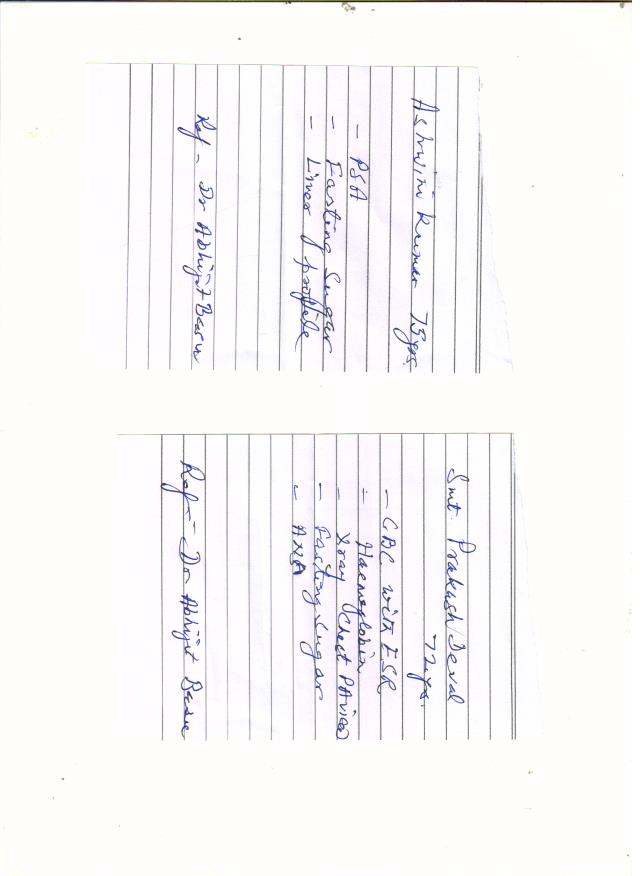 Ashwini Kumar 75 yrs.
- PSA
- Fasting Sugar
- Liver profile
Ref - Dr Abhijit Basu
Smt. Prakash
72 yrs.
- CBC with ESR
- Haemoglobin
- Xray (Chest PA view)
- Fasting Sugar
Ref - Dr Abhijit Basu